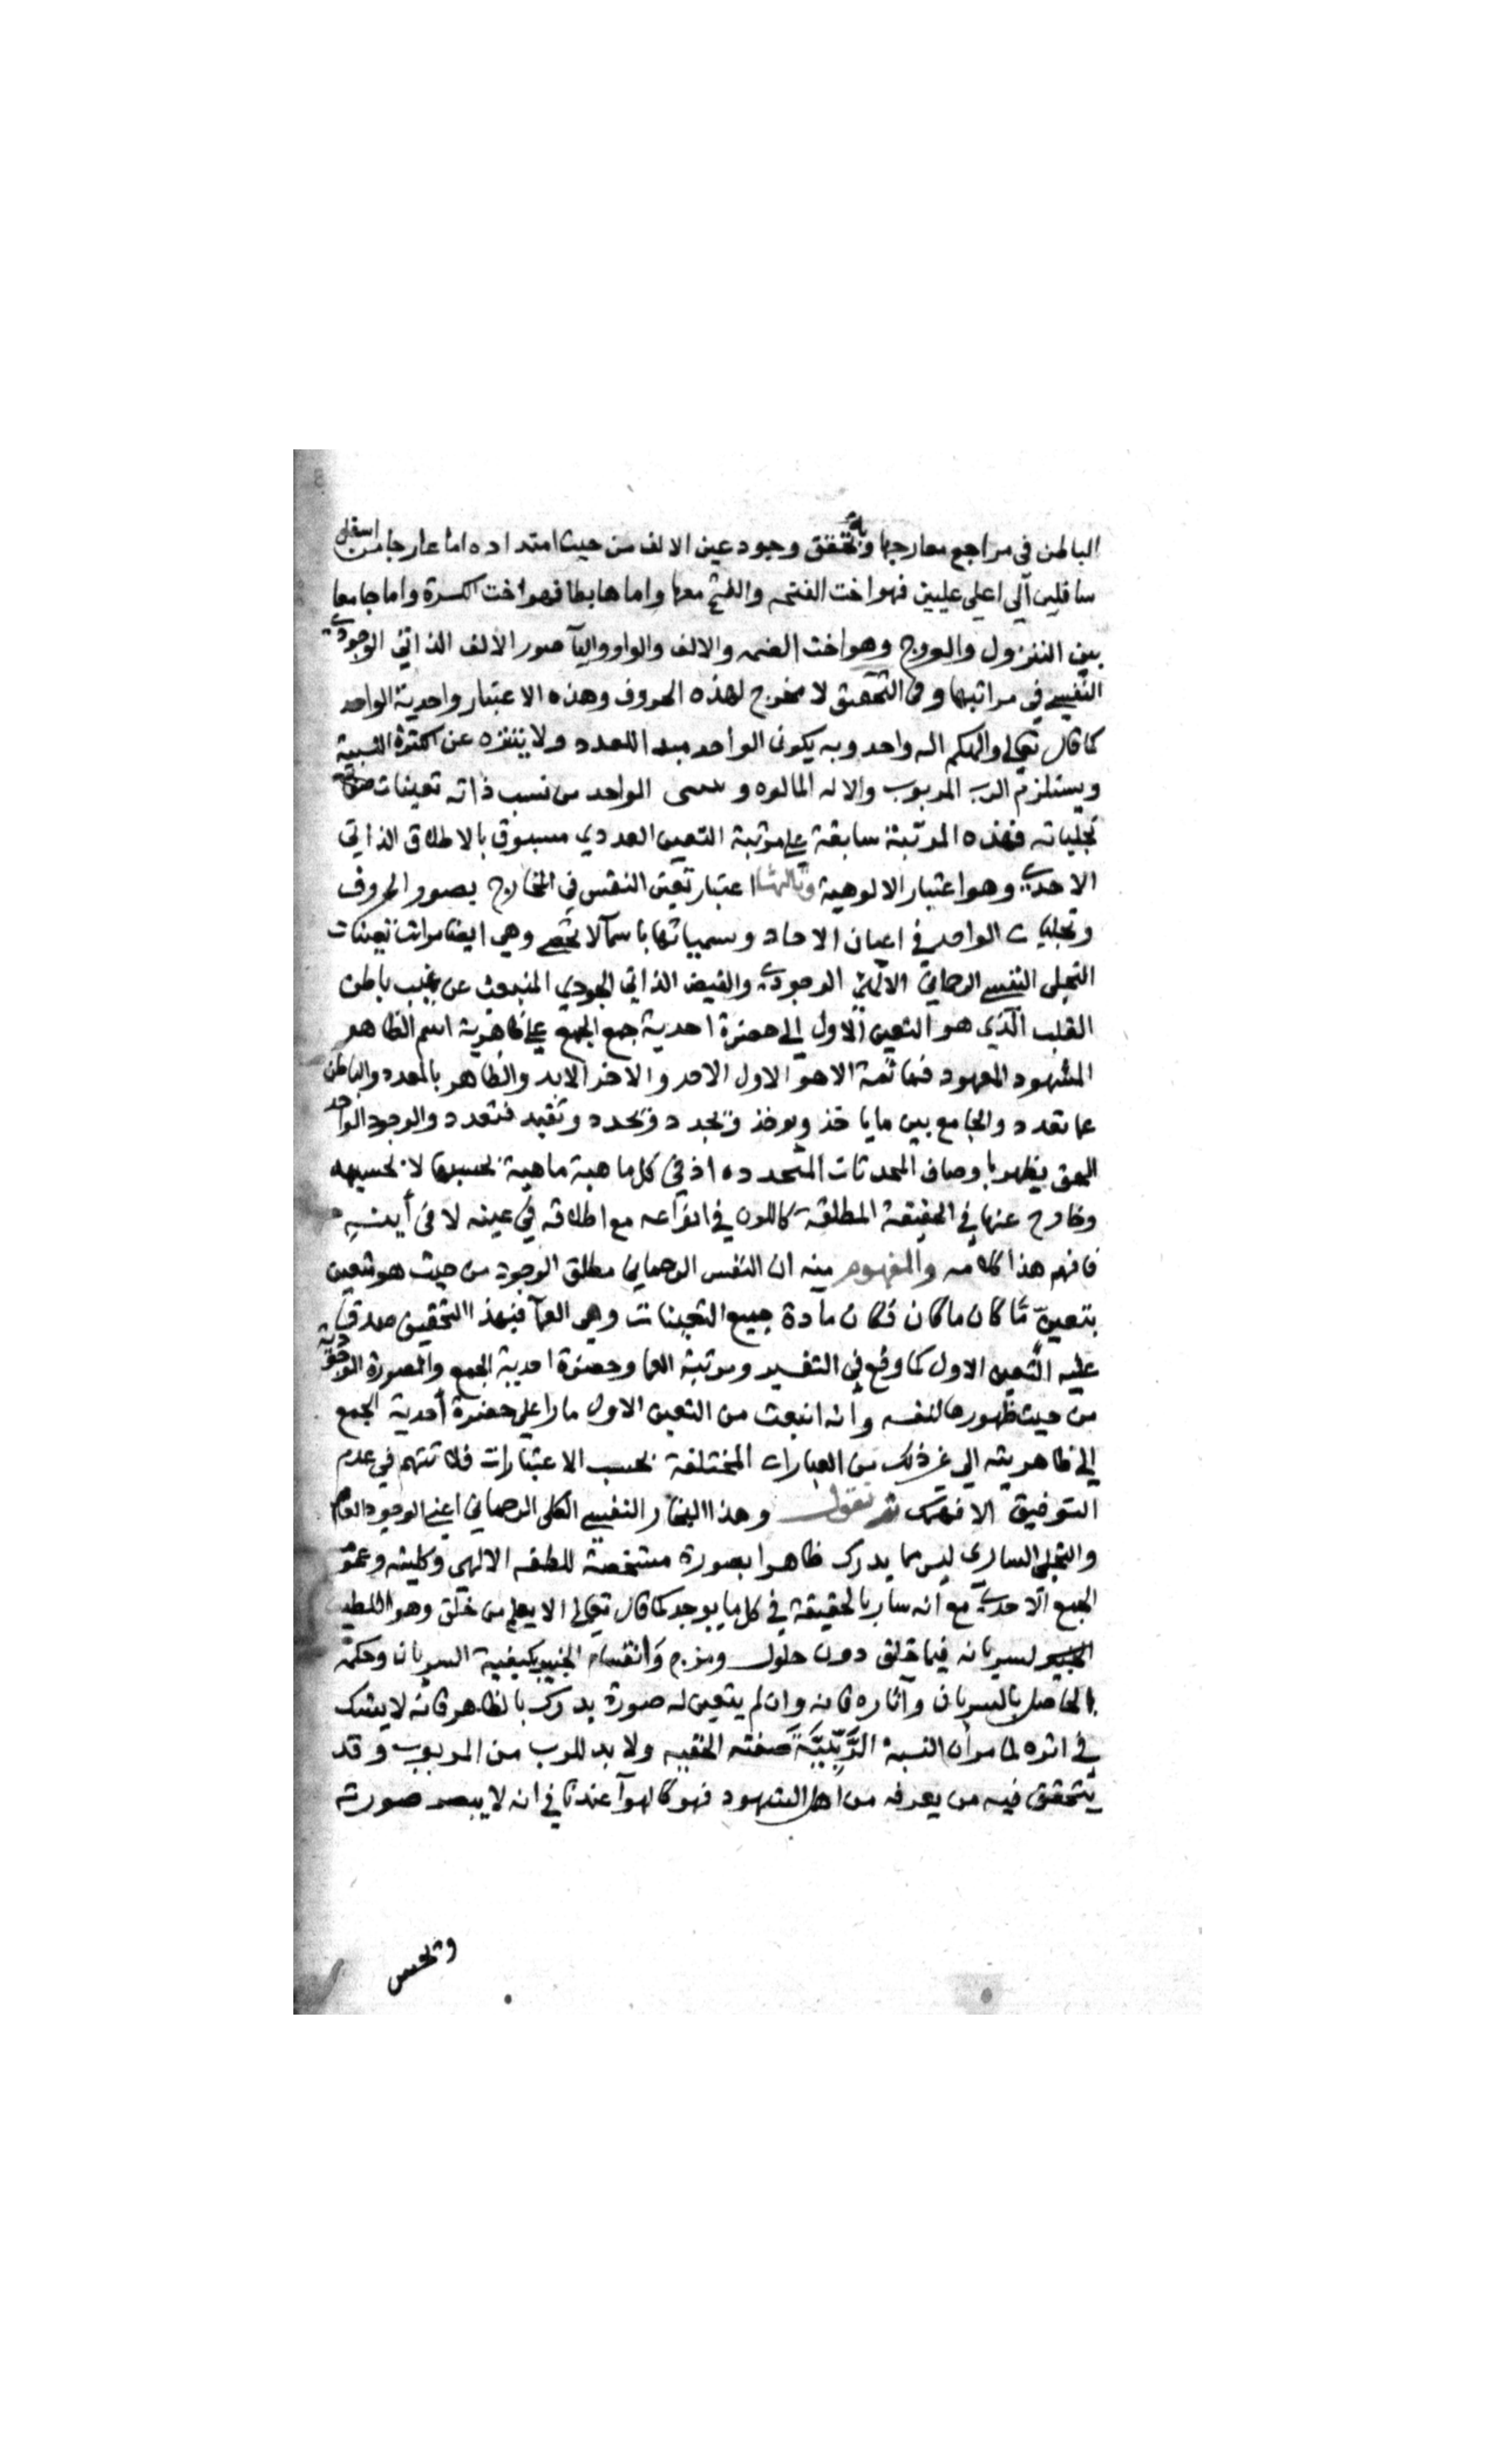 الباطن في مراجع معارجها وبه تحقق وجود عين الالف من حيث امتداده اما عارجا من اسفل
سافلين الى اعلى عليين فهو اخت الفتحه والفتح معها واما هابطا فهو اخت الكسرة واما جامعا
بين التنزول والعروج وهو اخت الضمه والالف والواو واليآ صور الالف الذاتي الوجودي
النفسي في مراتبها وفي التحقيق لا مخرج لهذه الحروف وهذه الاعتبار واحدية الواحد
كما قال تعالى والهكم اله واحد وبه يكون الواحد مبدا للعدد ولا يتنزه عن الكثرة النسبية
ويستلزم الرب المربوب والاله المالوه و الواحد من نسب ذاته تعينات
تجلياته فهذه المرتبة سابقة على مرتبة التعين العددي مسبوق بالاطلاق الذاتي
الاحدي وهو اعتبار الالوهية وثالثها اعتبار تعين النفس في المخارج بصور الحروف
وتجليات الواحد في اعيان الاحاد وسمياتها باسمآ لا تحصى وهي ايضا مراتب تعينات
التجلى النفسي الرحماني الوجودي والفيض الذاتي الجودي المنبعث عن غيب باطن
القلب الذي هو التعين الاول الى حضرة احدية جمع الجمع على ظاهرية اسم الظاهر
المشهود المعهود فما ثمة الا هو الاول الاحد والاخر الابد والظاهر بالمعدد والباطن
عما تعدد والجامع بين ما ياخذ ويوخذ وتجدد وتحدد وتقيد فتعدد والوجود الواحد
الحق يظهر باوصاف المحدثات المتحدده اذ في كل ماهية ماهية بحسبها لا بحسبه
وخارج عنها في الحقيقة المطلقة كاللون في انواعه مع اطلاقه في عينه لا في أينيه
فافهم هذا كلامه والمفهوم منه ان النفس الرحماني مطلق الوجود من حيث هو متعين
بتعين مّا كان ما كان فكان مآدة جميع التعينات وهي العمآ فبهذا التحقيق صدق
عليه التعين الاول كما وقع في التفسير ومرتبة العما وحضرة احدية الجمع والصورة الوجودية
من حيث ظهورها لنفسه وانه انبعث من التعين الاول مارا على حضرة أحدية الجمع
الى ظاهريته الى غير ذلك من العبارات المختلفة بحسب الاعتبارات فلا تتهم في عدم
التوفيق الا فهمك ثم نقول وهذا البخار النفسي الكلى الرحماني اعني الوجود العام
والتجلى الساري ليس مما يدرك ظاهرا بصورة مشخصة للطفه الالهي وكليته وعمق
الجمع الاحدي مع انه سار بالحقيقة في كل ما يوجد كما قال تعالى الا يعلم من خلق وهو اللطيف
الخبير لسريانه فيما خلق دون حلول ومزج وانقسام الخبير بكيفية السريان وحكمه
الحاصل بالسريان وآثاره فانه وان لم يتعين له صورة يدرك بالظاهر فانه لا يشك
في اثره لما مر أن النسبة الرَّبِّيَّة صفته الخفيه ولا بد للرب من المربوب وقد
يتحقق فيه من يعرفه من اهل الشهود فهو كالهوآ عندنا في انه لا يبصر صورته
وتحس